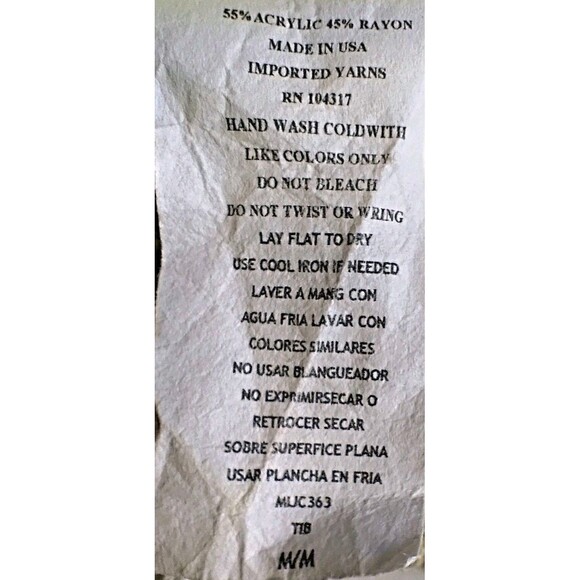 55% ACRYLIC 45% RAYON
MADE IN USA
IMPORTED YARNS
RN 104317
HAND WASH COLDWITH
LIKE COLORS ONLY
DO NOT BLEACH
DO NOT TWIST OR WRING
LAY FLAT TO DRY
USE COOL IRON IF NEEDED
LAVER A MANG CON
AGUA FRIA LAVAR CON
COLORES SIMILARES
NO USAR BLANGUEADOR
NO EXPRIMIRSECAR O
RETROCER SECAR
SOBRE SUPERFICE PLANA
USAR PLANCHA EN FRIA
MIJC363
M/M